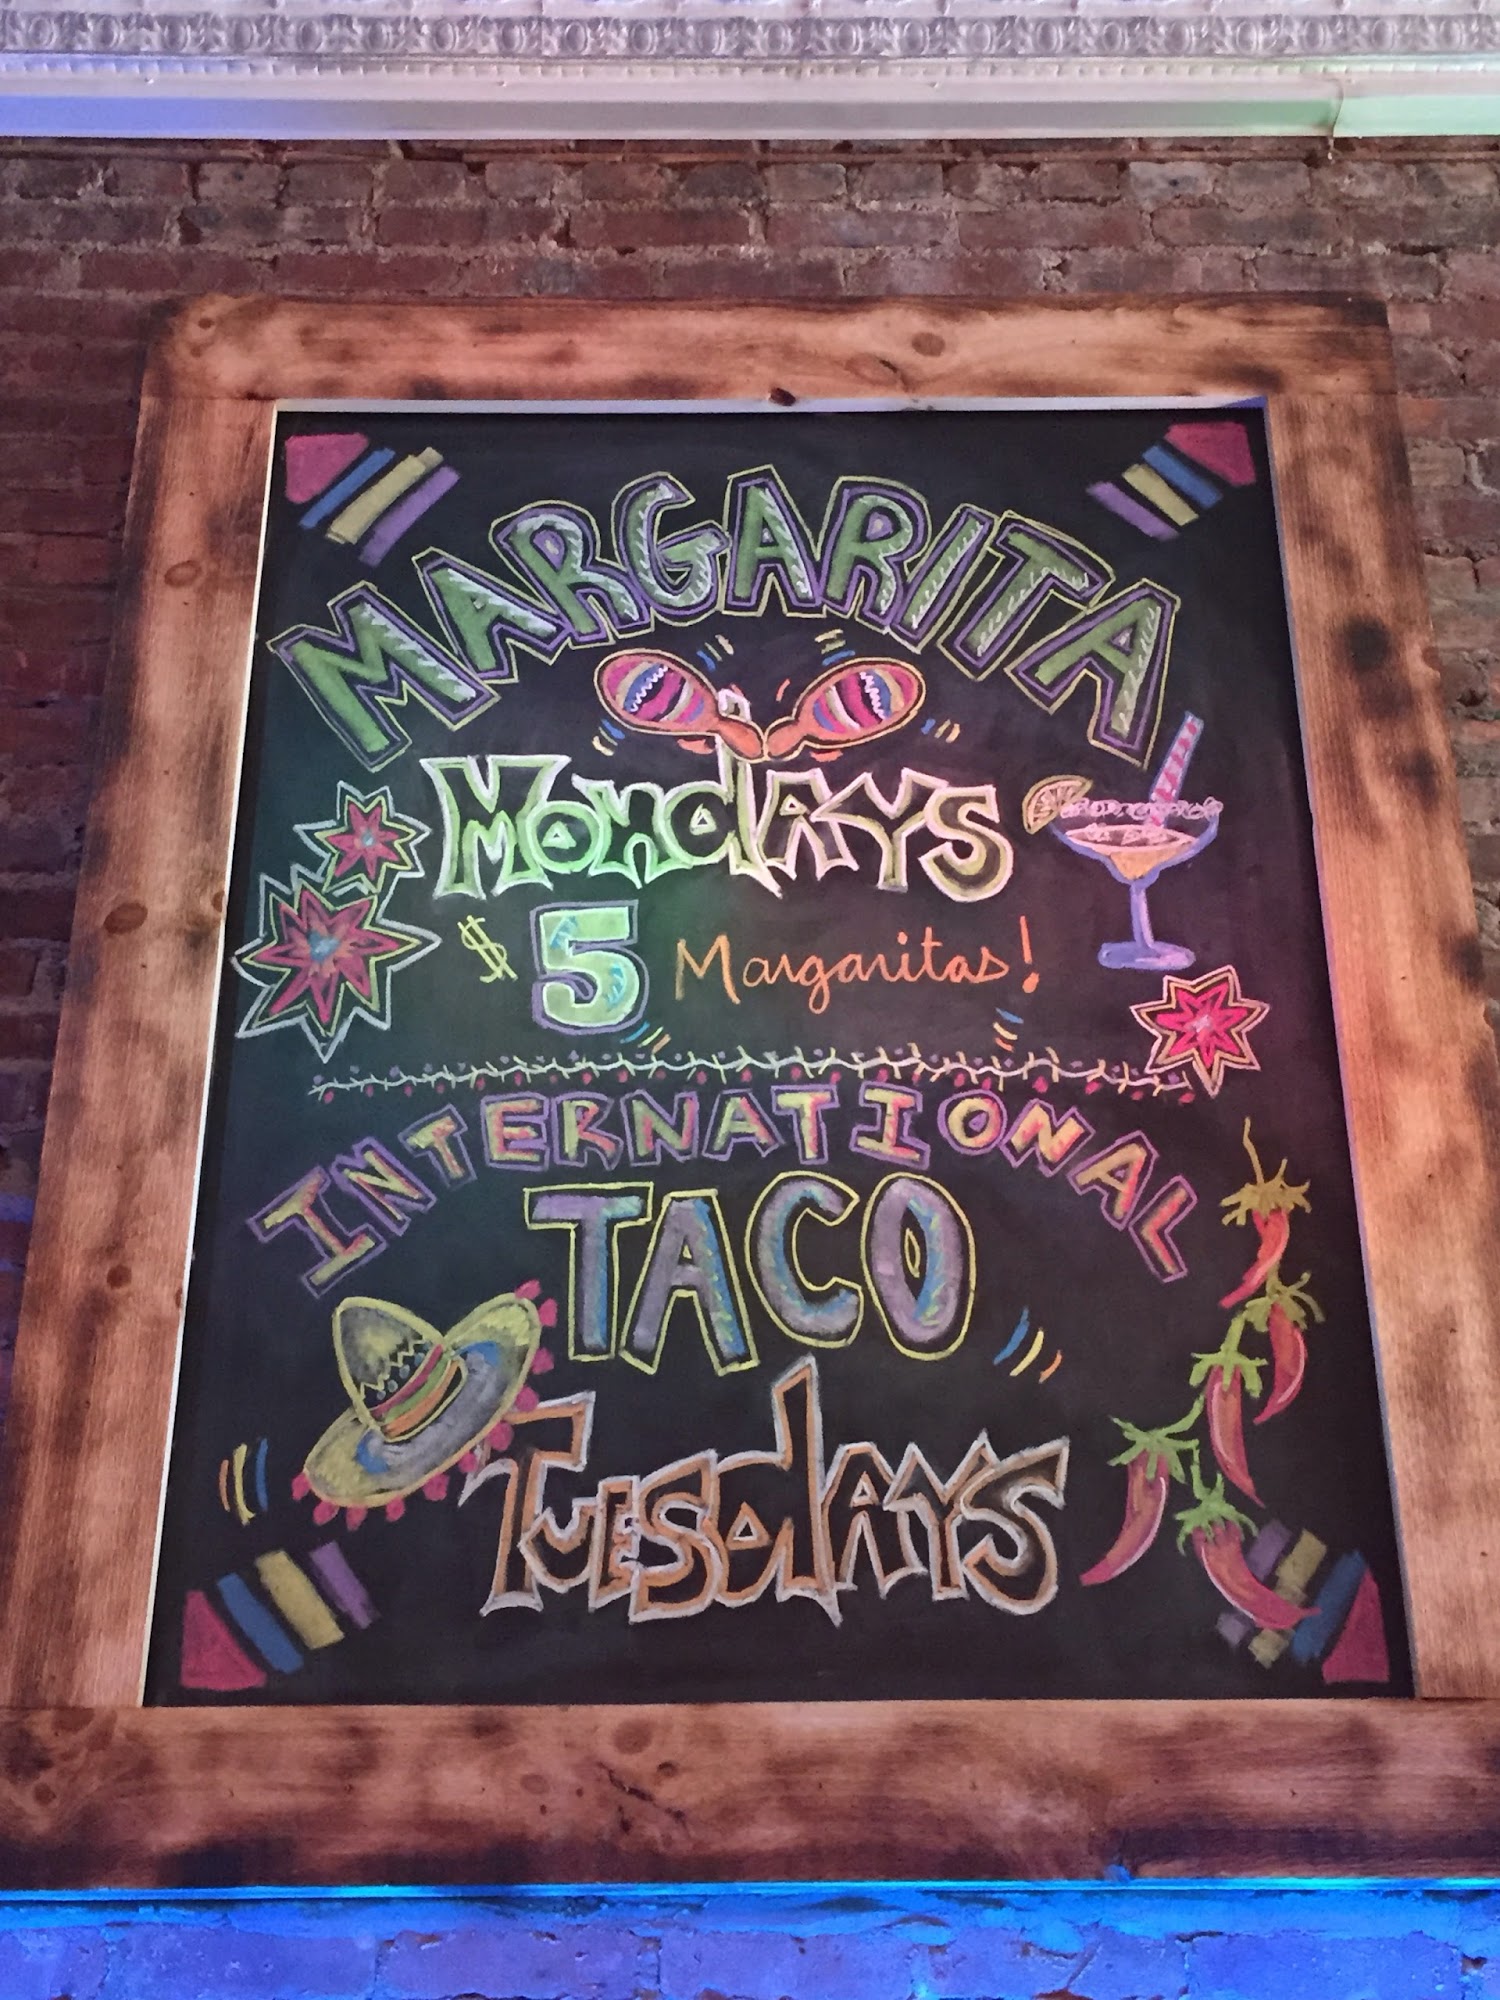 MARGARITA
MondAYS
$5 Margaritas!
INTERNATIONAL
TACO
TUESdAYS